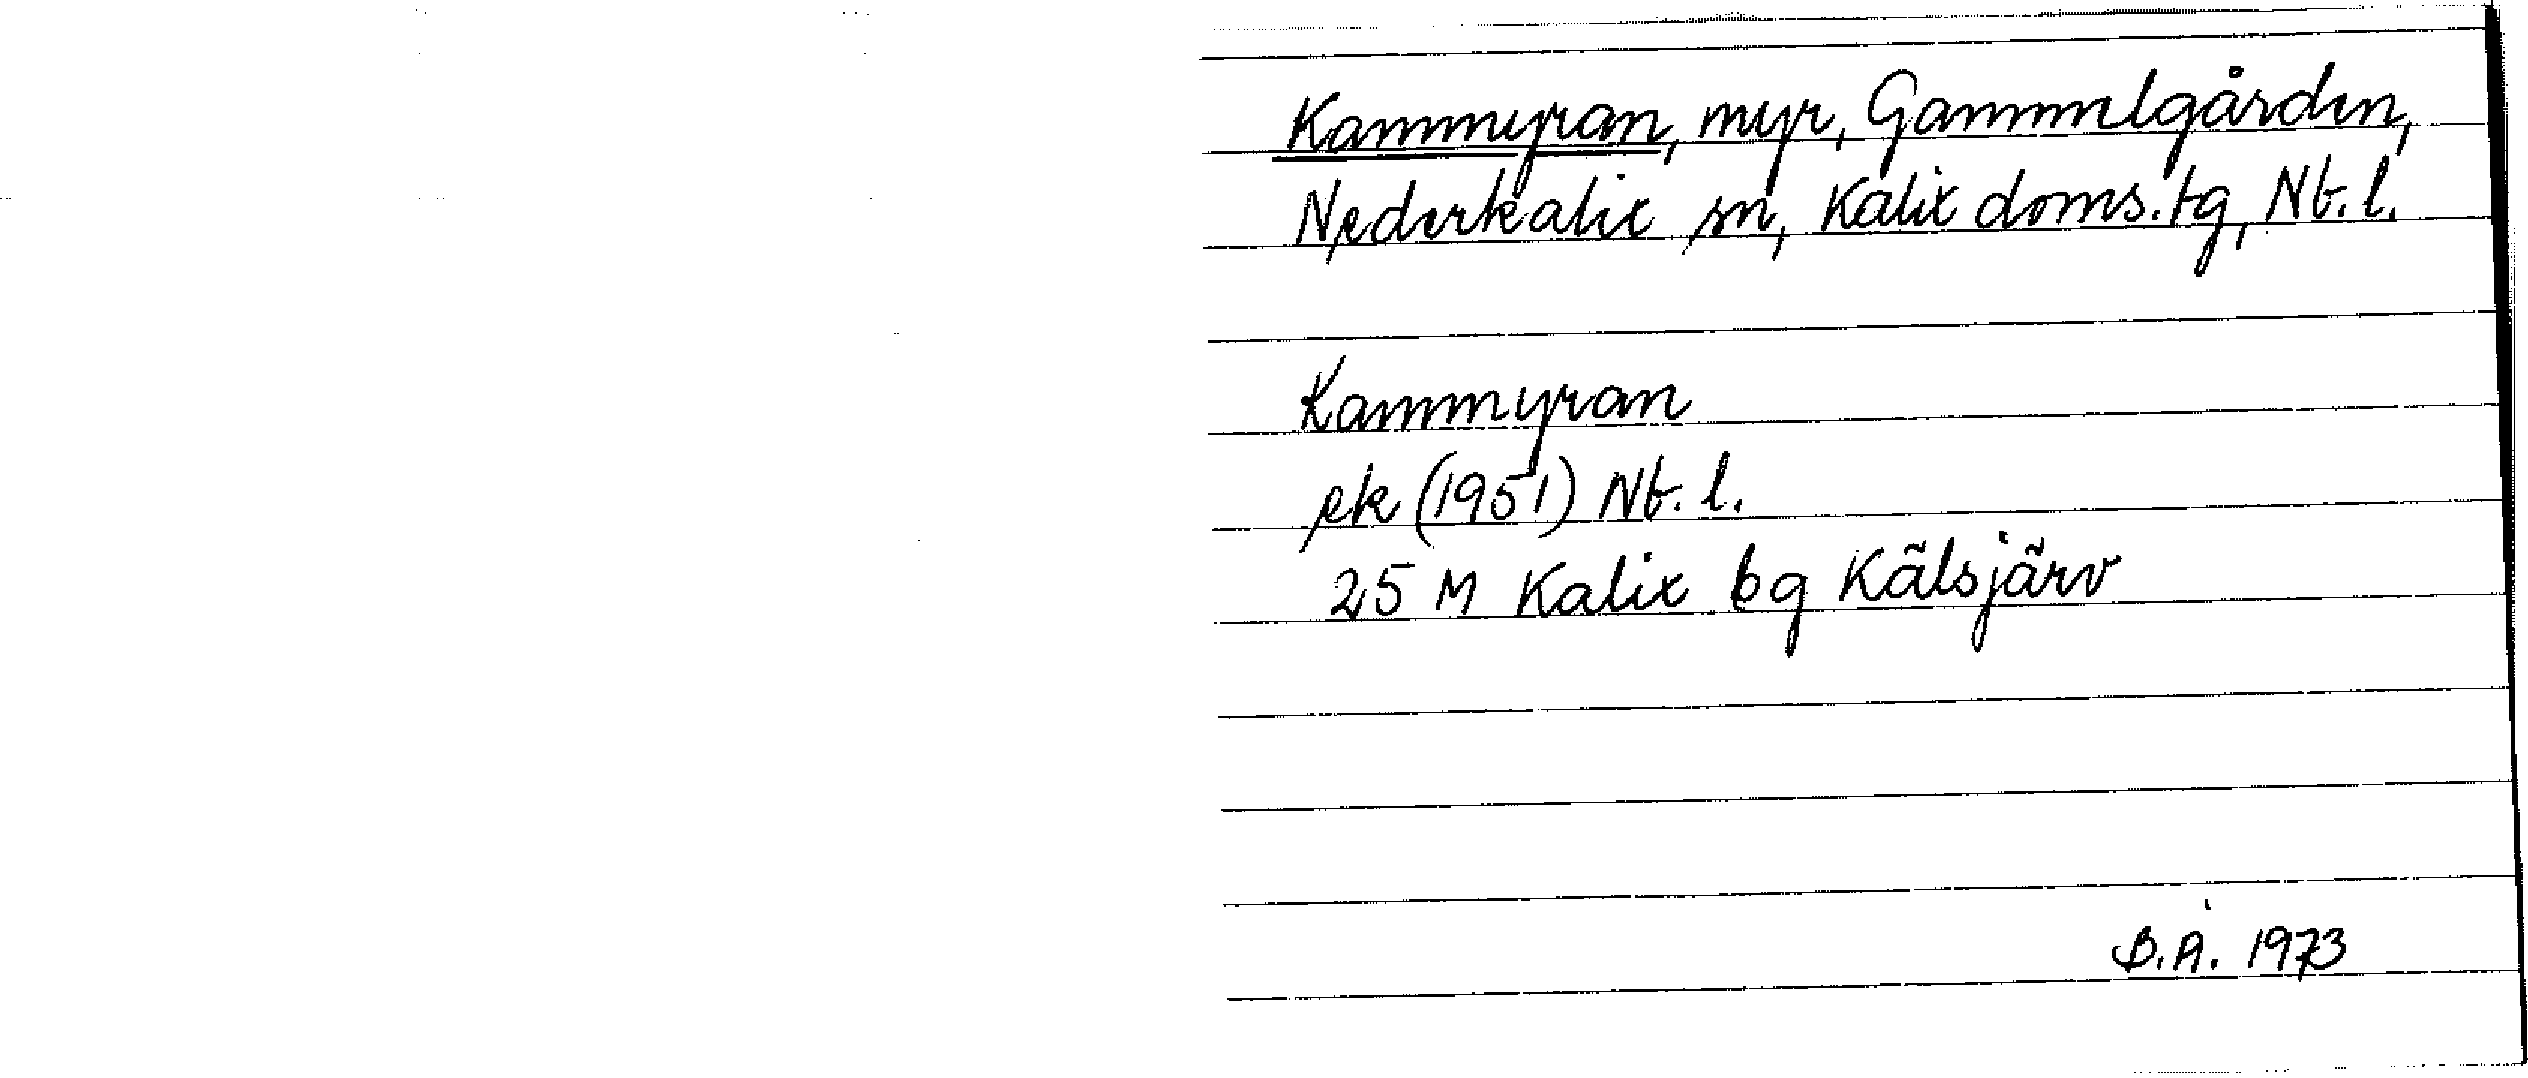 Kammyran, myr, Gammelgården,
Nederkalix sn, Kalix doms.tg, Nb.l.
Kammyran
ek (1951) Nb.l.
25 M Kalix bg Kälsjärv
B.A. 1973